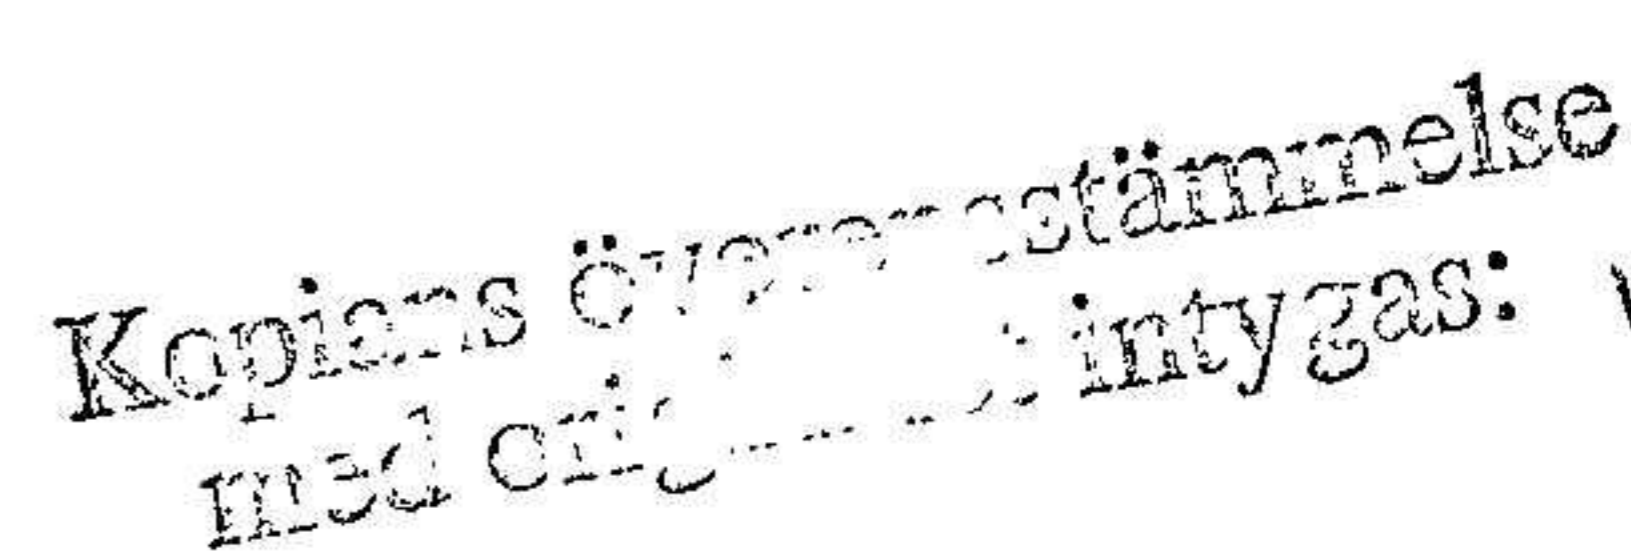 Kopians överensstämmelse
med originalet intygas: